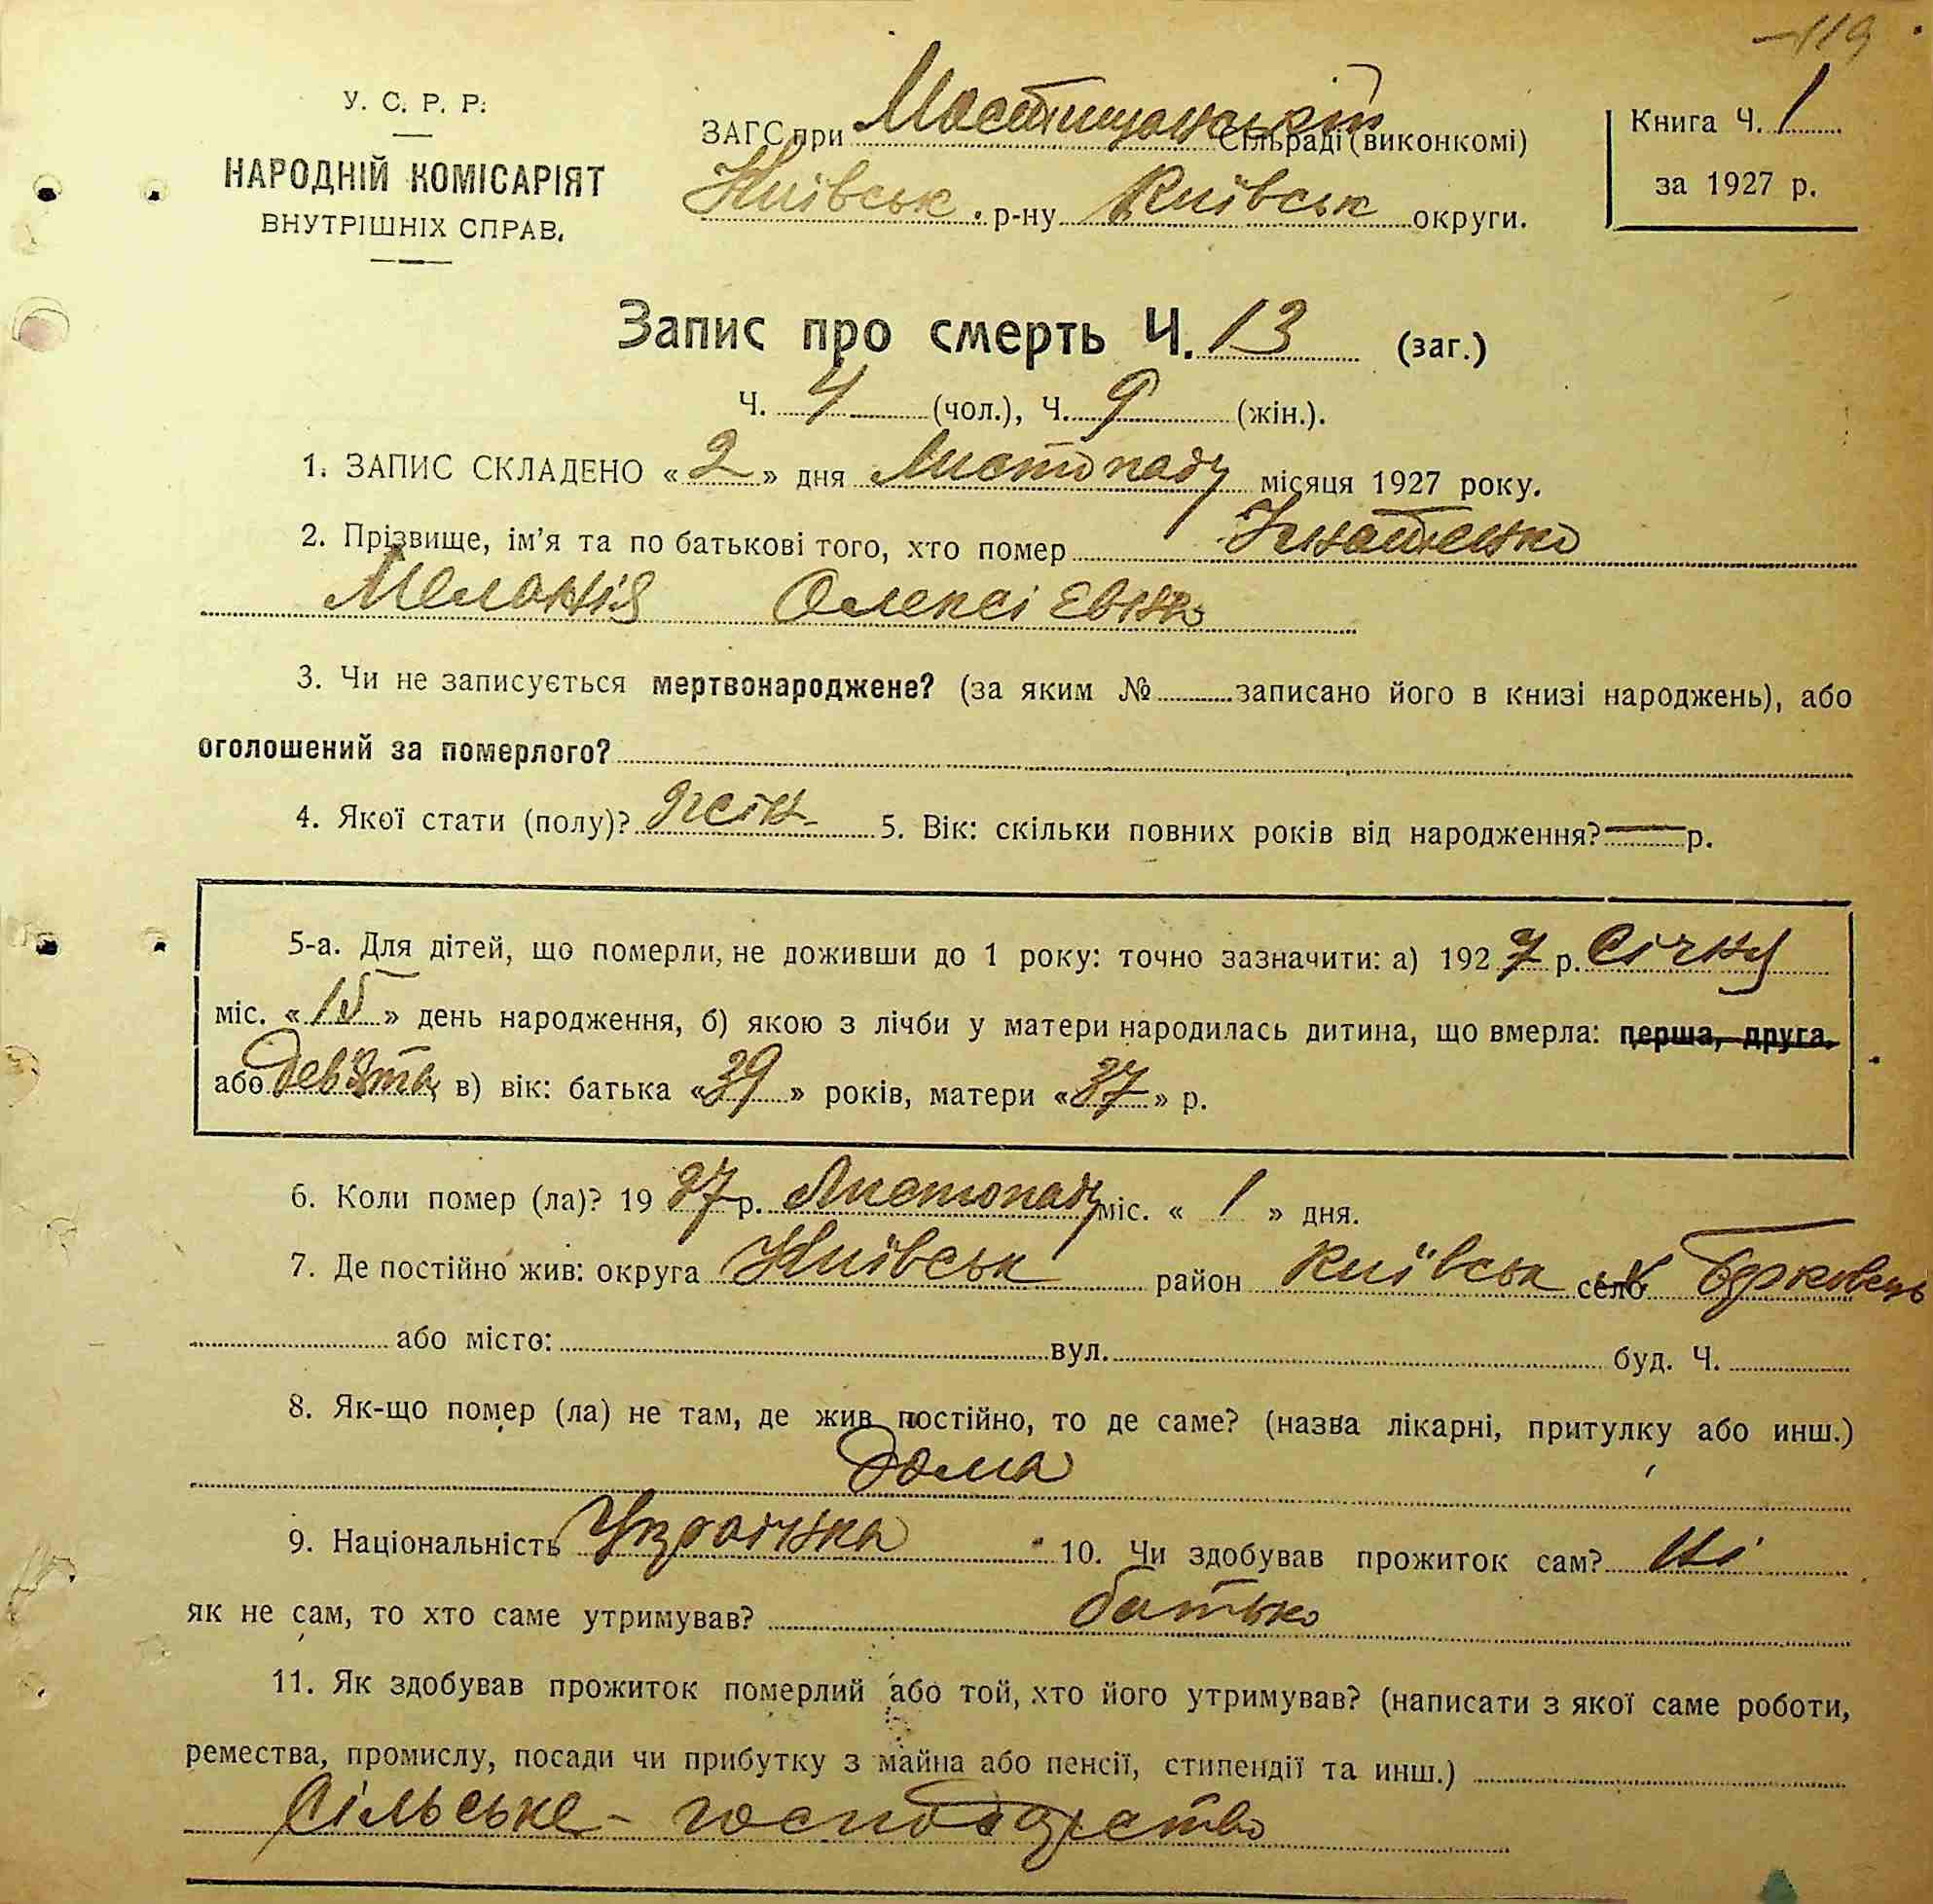 119
У. С. Р. Р.
НАРОДНІЙ КОМІСАРІЯТ
ВНУТРІШНІХ СПРАВ.
ЗАГС при Мостищанській Сільраді (виконкомі)
Київськ. р-ну Київськ округи.
Книга Ч. 1
за 1927 р.
Запис про смерть Ч. 13 (заг.)
Ч. 4 (чол.), Ч. 9 (жін.).
1. ЗАПИС СКЛАДЕНО «2» дня Листопаду місяця 1927 року.
2. Прізвище, ім'я та по батькові того, хто помер Ігнатенко
Меланія Олексієвна
3. Чи не записується мертвонароджене? (за яким № записано його в книзі народжень), або
оголошений за померлого?
4. Якої стати (полу)? жін. 5. Вік: скільки повних років від народження? — р.
5-а. Для дітей, що померли, не доживши до 1 року: точно зазначити: а) 1927 р. Січня
міс. «15» день народження, б) якою з лічби у матери народилась дитина, що вмерла: перша, друга,
або дев'ята, в) вік: батька «39» років, матери «37» р.
6. Коли помер (ла)? 1927 р. Листопаду міс. «1» дня.
7. Де постійно жив: округа Київськ район Київськ село х Берковець
або місто: вул. буд. Ч.
8. Як-що помер (ла) не там, де жив постійно, то де саме? (назва лікарні, притулку або инш.)
дома
9. Національність Українка 10. Чи здобував прожиток сам? ні
як не сам, то хто саме утримував? батько
11. Як здобував прожиток померлий або той, хто його утримував? (написати з якої саме роботи,
ремества, промислу, посади чи прибутку з майна або пенсії, стипендії та инш.)
Сільське - господарство